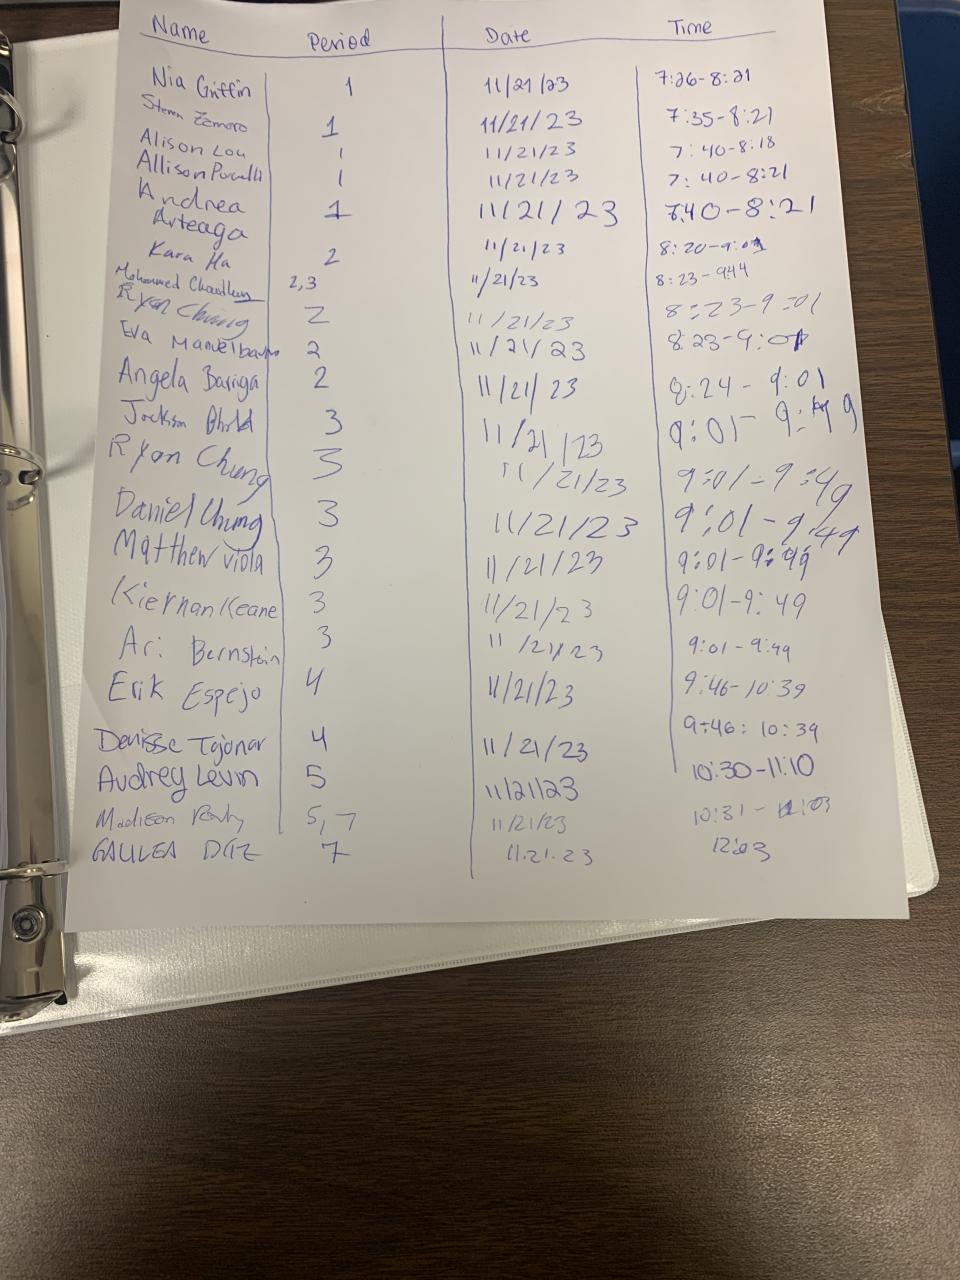 Name Period Date Time
Nia Griffin 1 11/21/23 7:26-8:21
Zamora 1 11/21/23 7:35-8:21
Alison Lou 1 11/21/23 7:40-8:18
Allison Purcelli 1 11/21/23 7:40-8:21
Andrea
Arteaga 1 11/21/23 7:40-8:21
Kara Ha 2 11/21/23 8:20-9:01
Mohammed Chaudhury 2,3 11/21/23 8:23-9:44
Ryan Chung 2 11/21/23 8:23-9:01
Eva 2 11/21/23 8:23-9:01
Angela Bariga 2 11/21/23 8:24-9:01
Jackson 3 11/21/23 9:01-9:49
Ryan Chung 3 11/21/23 9:01-9:49
Daniel Chung 3 11/21/23 9:01-9:49
Matthew Viola 3 11/21/23 9:01-9:49
Kiernan Keane 3 11/21/23 9:01-9:49
Ari Bernstein 3 11/21/23 9:01-9:49
Erik Espejo 4 11/21/23 9:46-10:39
Denisse Tajonar 4 11/21/23 9:46: 10:39
Audrey Levin 5 11/21/23 10:30-11:10
Madison 5,7 11/21/23 10:31-11:03
GALILEA DIZ 7 11.21.23 12:03